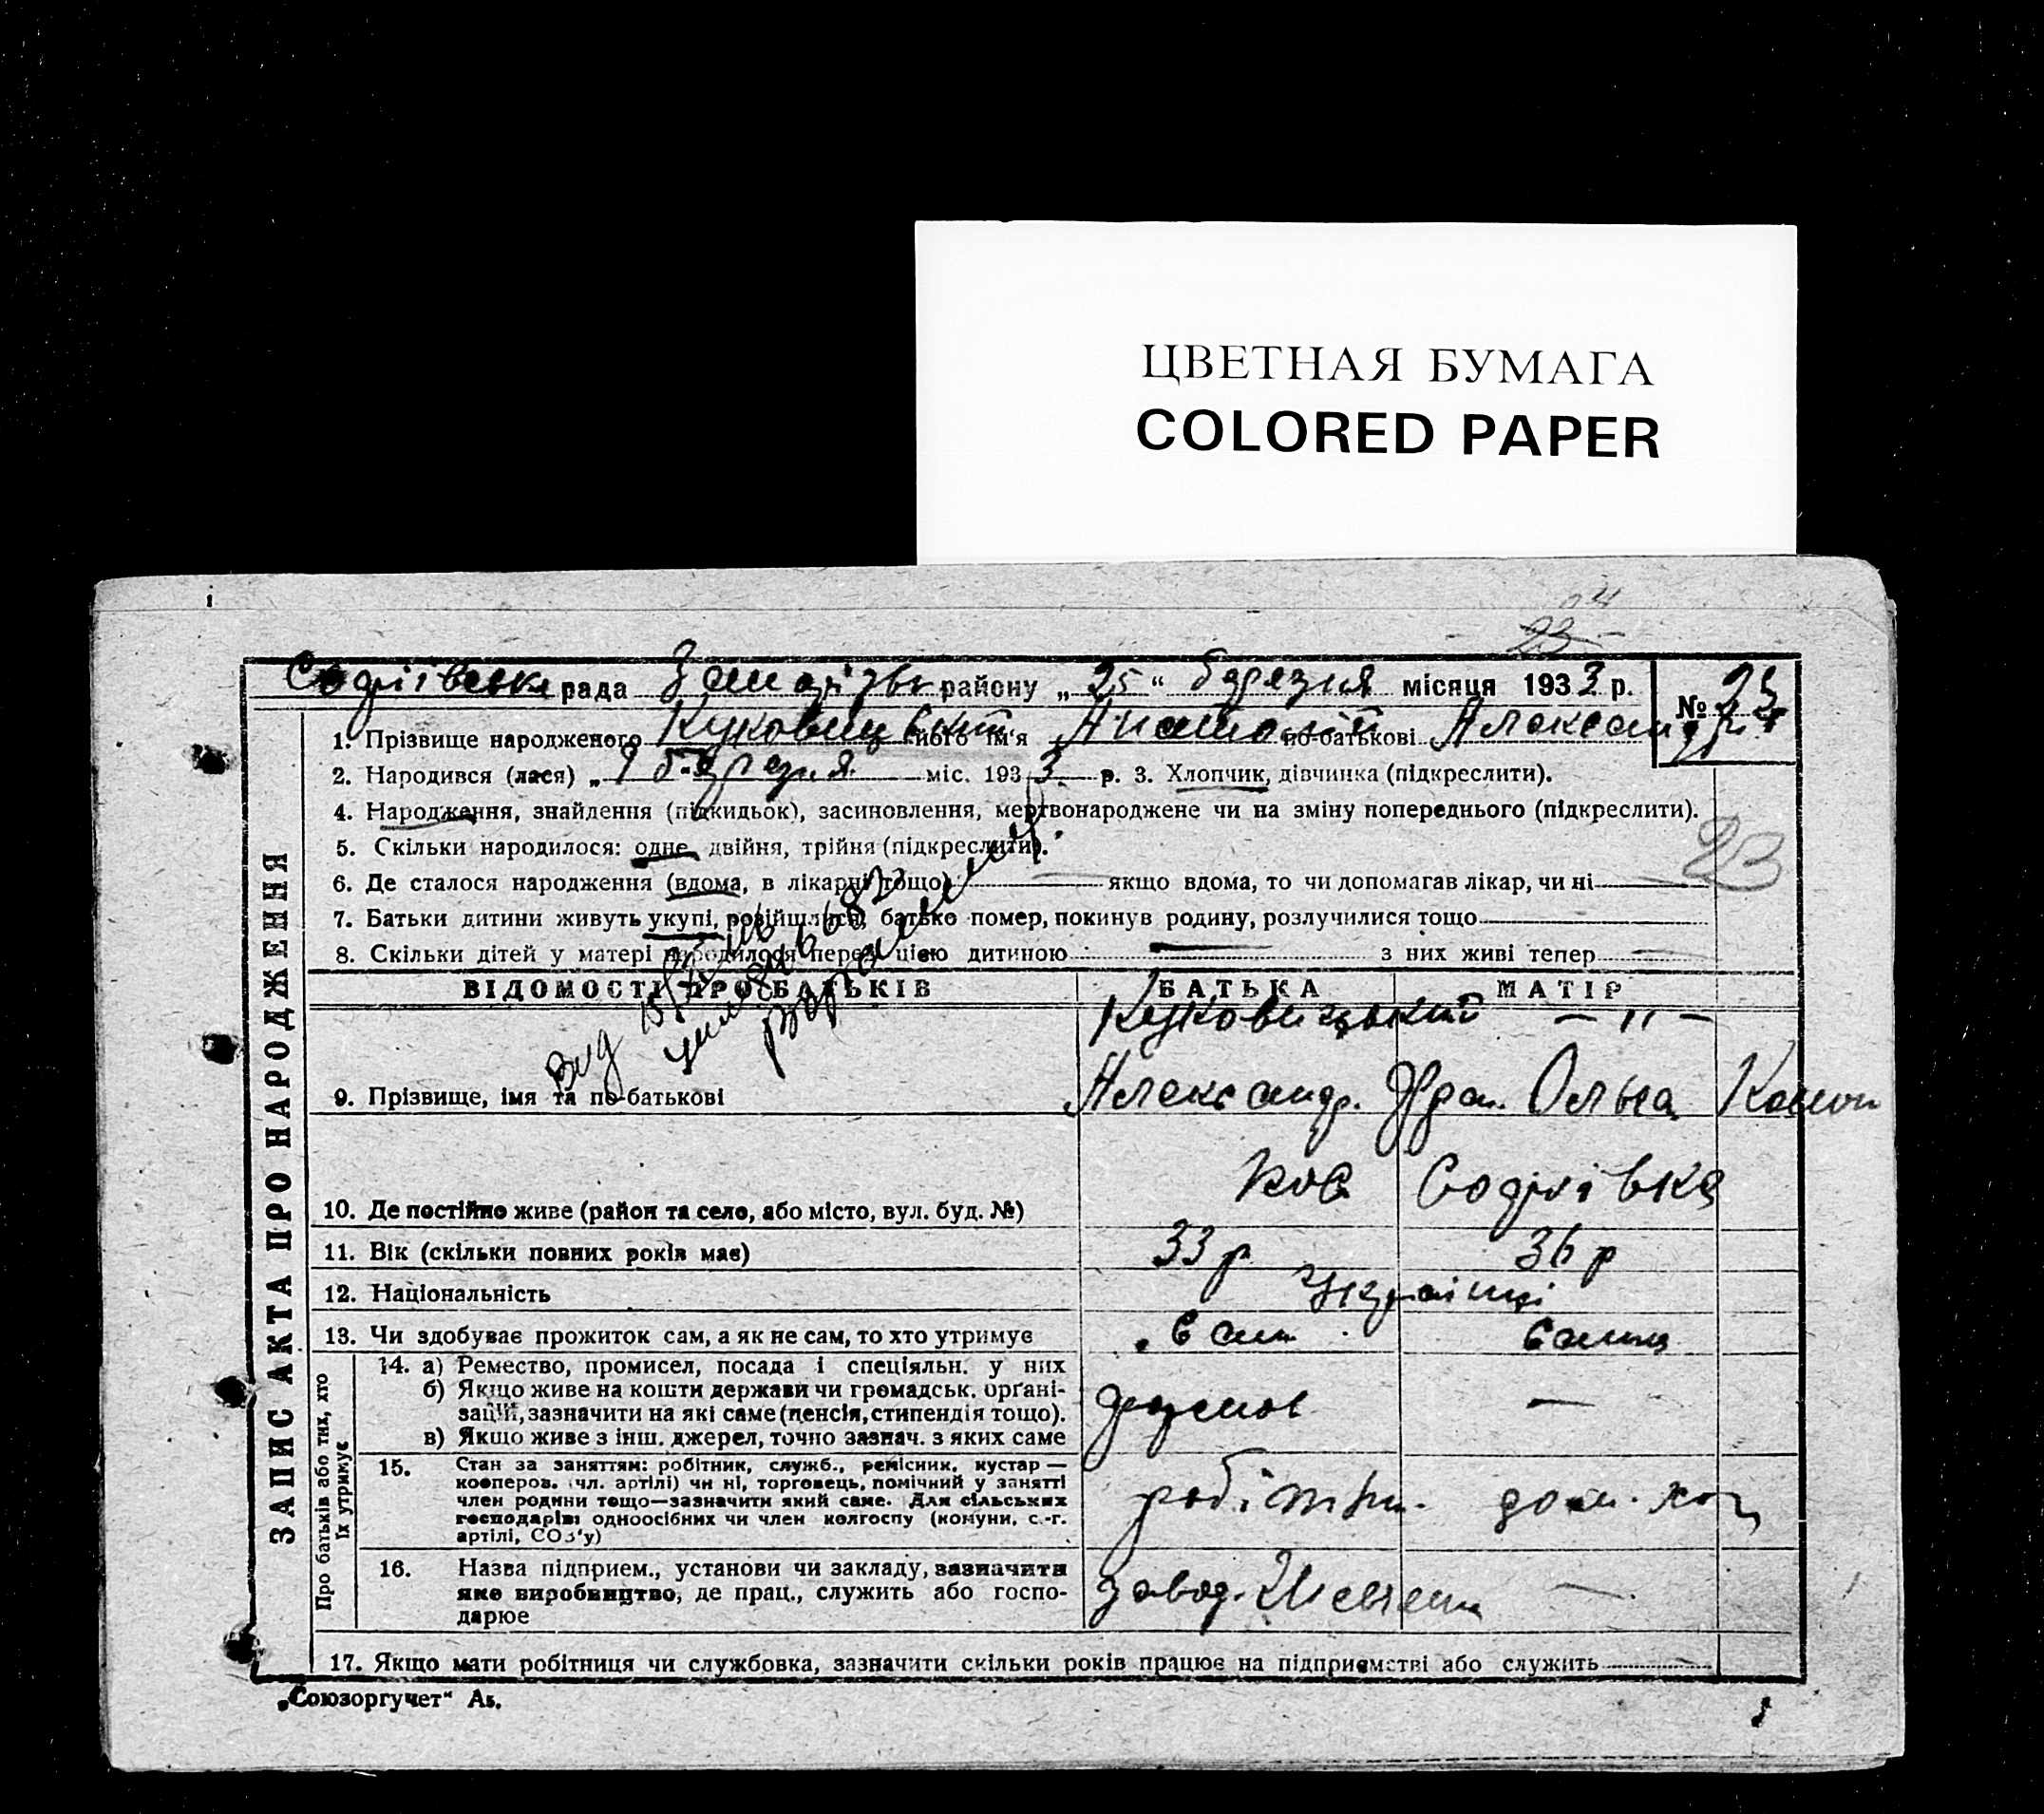 ЦВЕТНАЯ БУМАГА
COLORED PAPER
24
23
рада районy „ 25 “ березня місяця 1933 р. № 23
1. Прізвище народженого його ім'я Анатолій по-батькові Александр
2. Народився (лася) „ 9 березня міс. 193 3 р. 3. Хлопчик, дівчинка (підкреслити).
4. Народження, знайдення (підкидьок), засиновлення, мертвонароджене чи на зміну попереднього (підкреслити).
5. Скільки народилося: одне, двійня, трійня (підкреслити).
23
6. Де сталося народження (вдома, в лікарні тощо) якщо вдома, то чи допомагав лікар, чи ні
7. Батьки дитини живуть укупі, розійшлися, батько помер, покинув родину, розлучилися тощо
8. Скільки дітей у матері народилося перед цією дитиною — з них живі тепер —
ВІДОМОСТІ ПРО БАТЬКІВ БАТЬКА МАТІР
Куковицький — " —
9. Прізвище, імя та по-батькові Александр. Ольга
10. Де постійно живе (район та село, або місто, вул. буд. №)
11. Вік (скільки повних років має) 33 р 36 р
12. Національність Українці
13. Чи здобуває прожиток сам, а як не сам, то хто утримує сам
Про батьків або тих, хто їх утримує
14. а) Ремество, промисел, посада і спеціяльн. у них
б) Якщо живе на кошти держави чи громадськ. орґані-
зацій, зазначити на які саме (пенсія, стипендія тощо). —
в) Якщо живе з інш. джерел, точно зазнач. з яких саме
15. Стан за заняттям: робітник, служб., ремісник, кустар —
коопероз. (чл. артілі) чи ні, торговець, помічний у занятті
член родини тощо—зазначити який саме. Для сільських
господарів: одноосібних чи член колгоспу (комуни, с.-г.
артілі, СОЗ'у)
робітн. дом. хоз
16. Назва підприєм., установи чи закладу, зазначити
яке виробництво, де прац., служить або госпо-
дарює
завод. —
17. Якщо мати робітниця чи службовка, зазначити скільки років працює на підприємстві або служить
ЗАПИС АКТА ПРО НАРОДЖЕННЯ
„Союзоргучет“ А5.